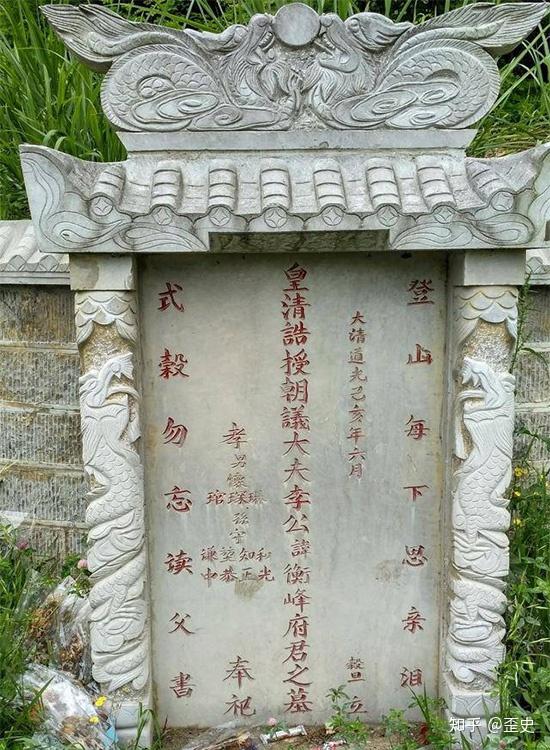 登山每下思亲泪
大清道光己亥年六月
穀旦立
皇清誥授朝議大夫李公諱衡峰府君之墓
孝男懷
孫守
謙堃知和
中恭正光
奉祀
式穀勿忘读父書
知乎 @歪史